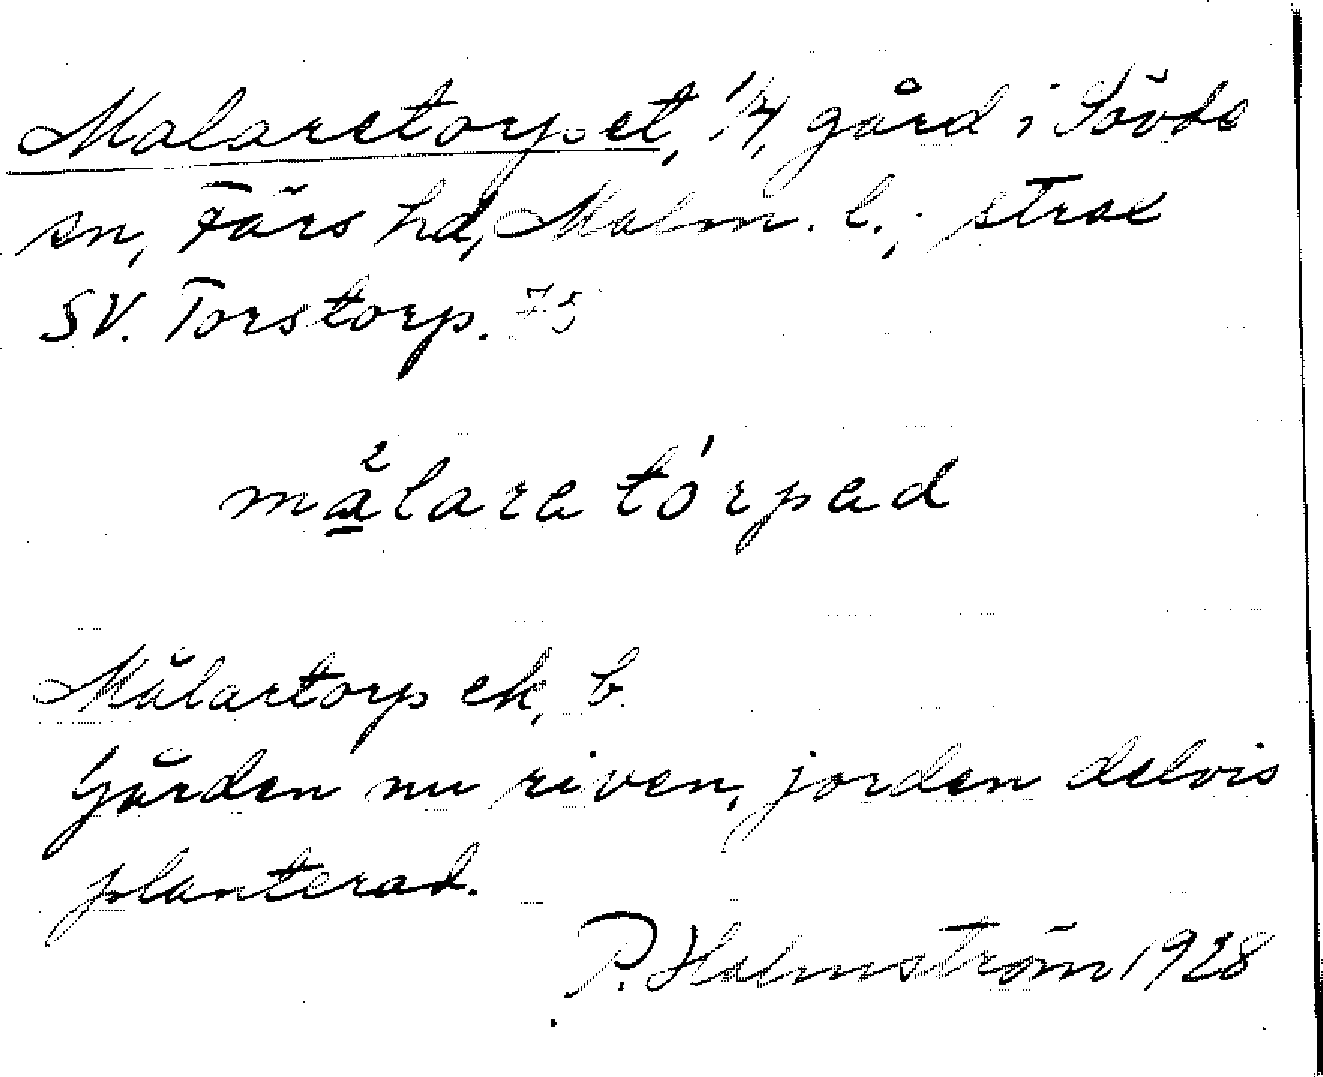 Malaretorpet, 1/4, gård i Sövde
sn, Färs hd, Malm. l., strax
SV. Torstorp. 75
målaretórpad
Målartorp ek. b.
Gården nu riven, jorden delvis
planterad.
P. Holmström 1928